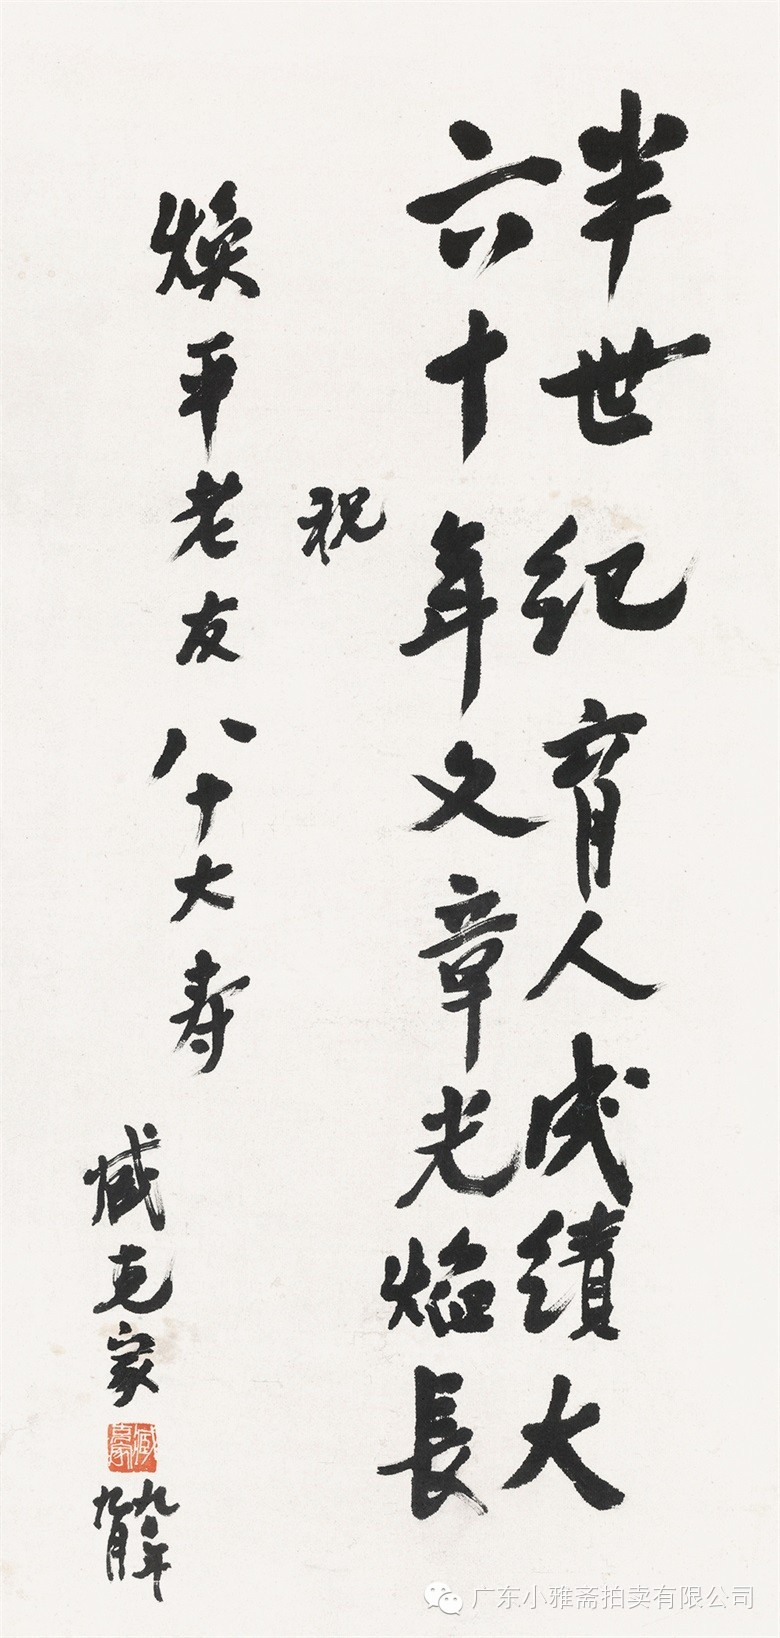 半世纪育人成績大
六十年文章光焰長
祝
焕平老友八十大寿
臧克家
九〇年
九月
广东小雅斋拍卖有限公司